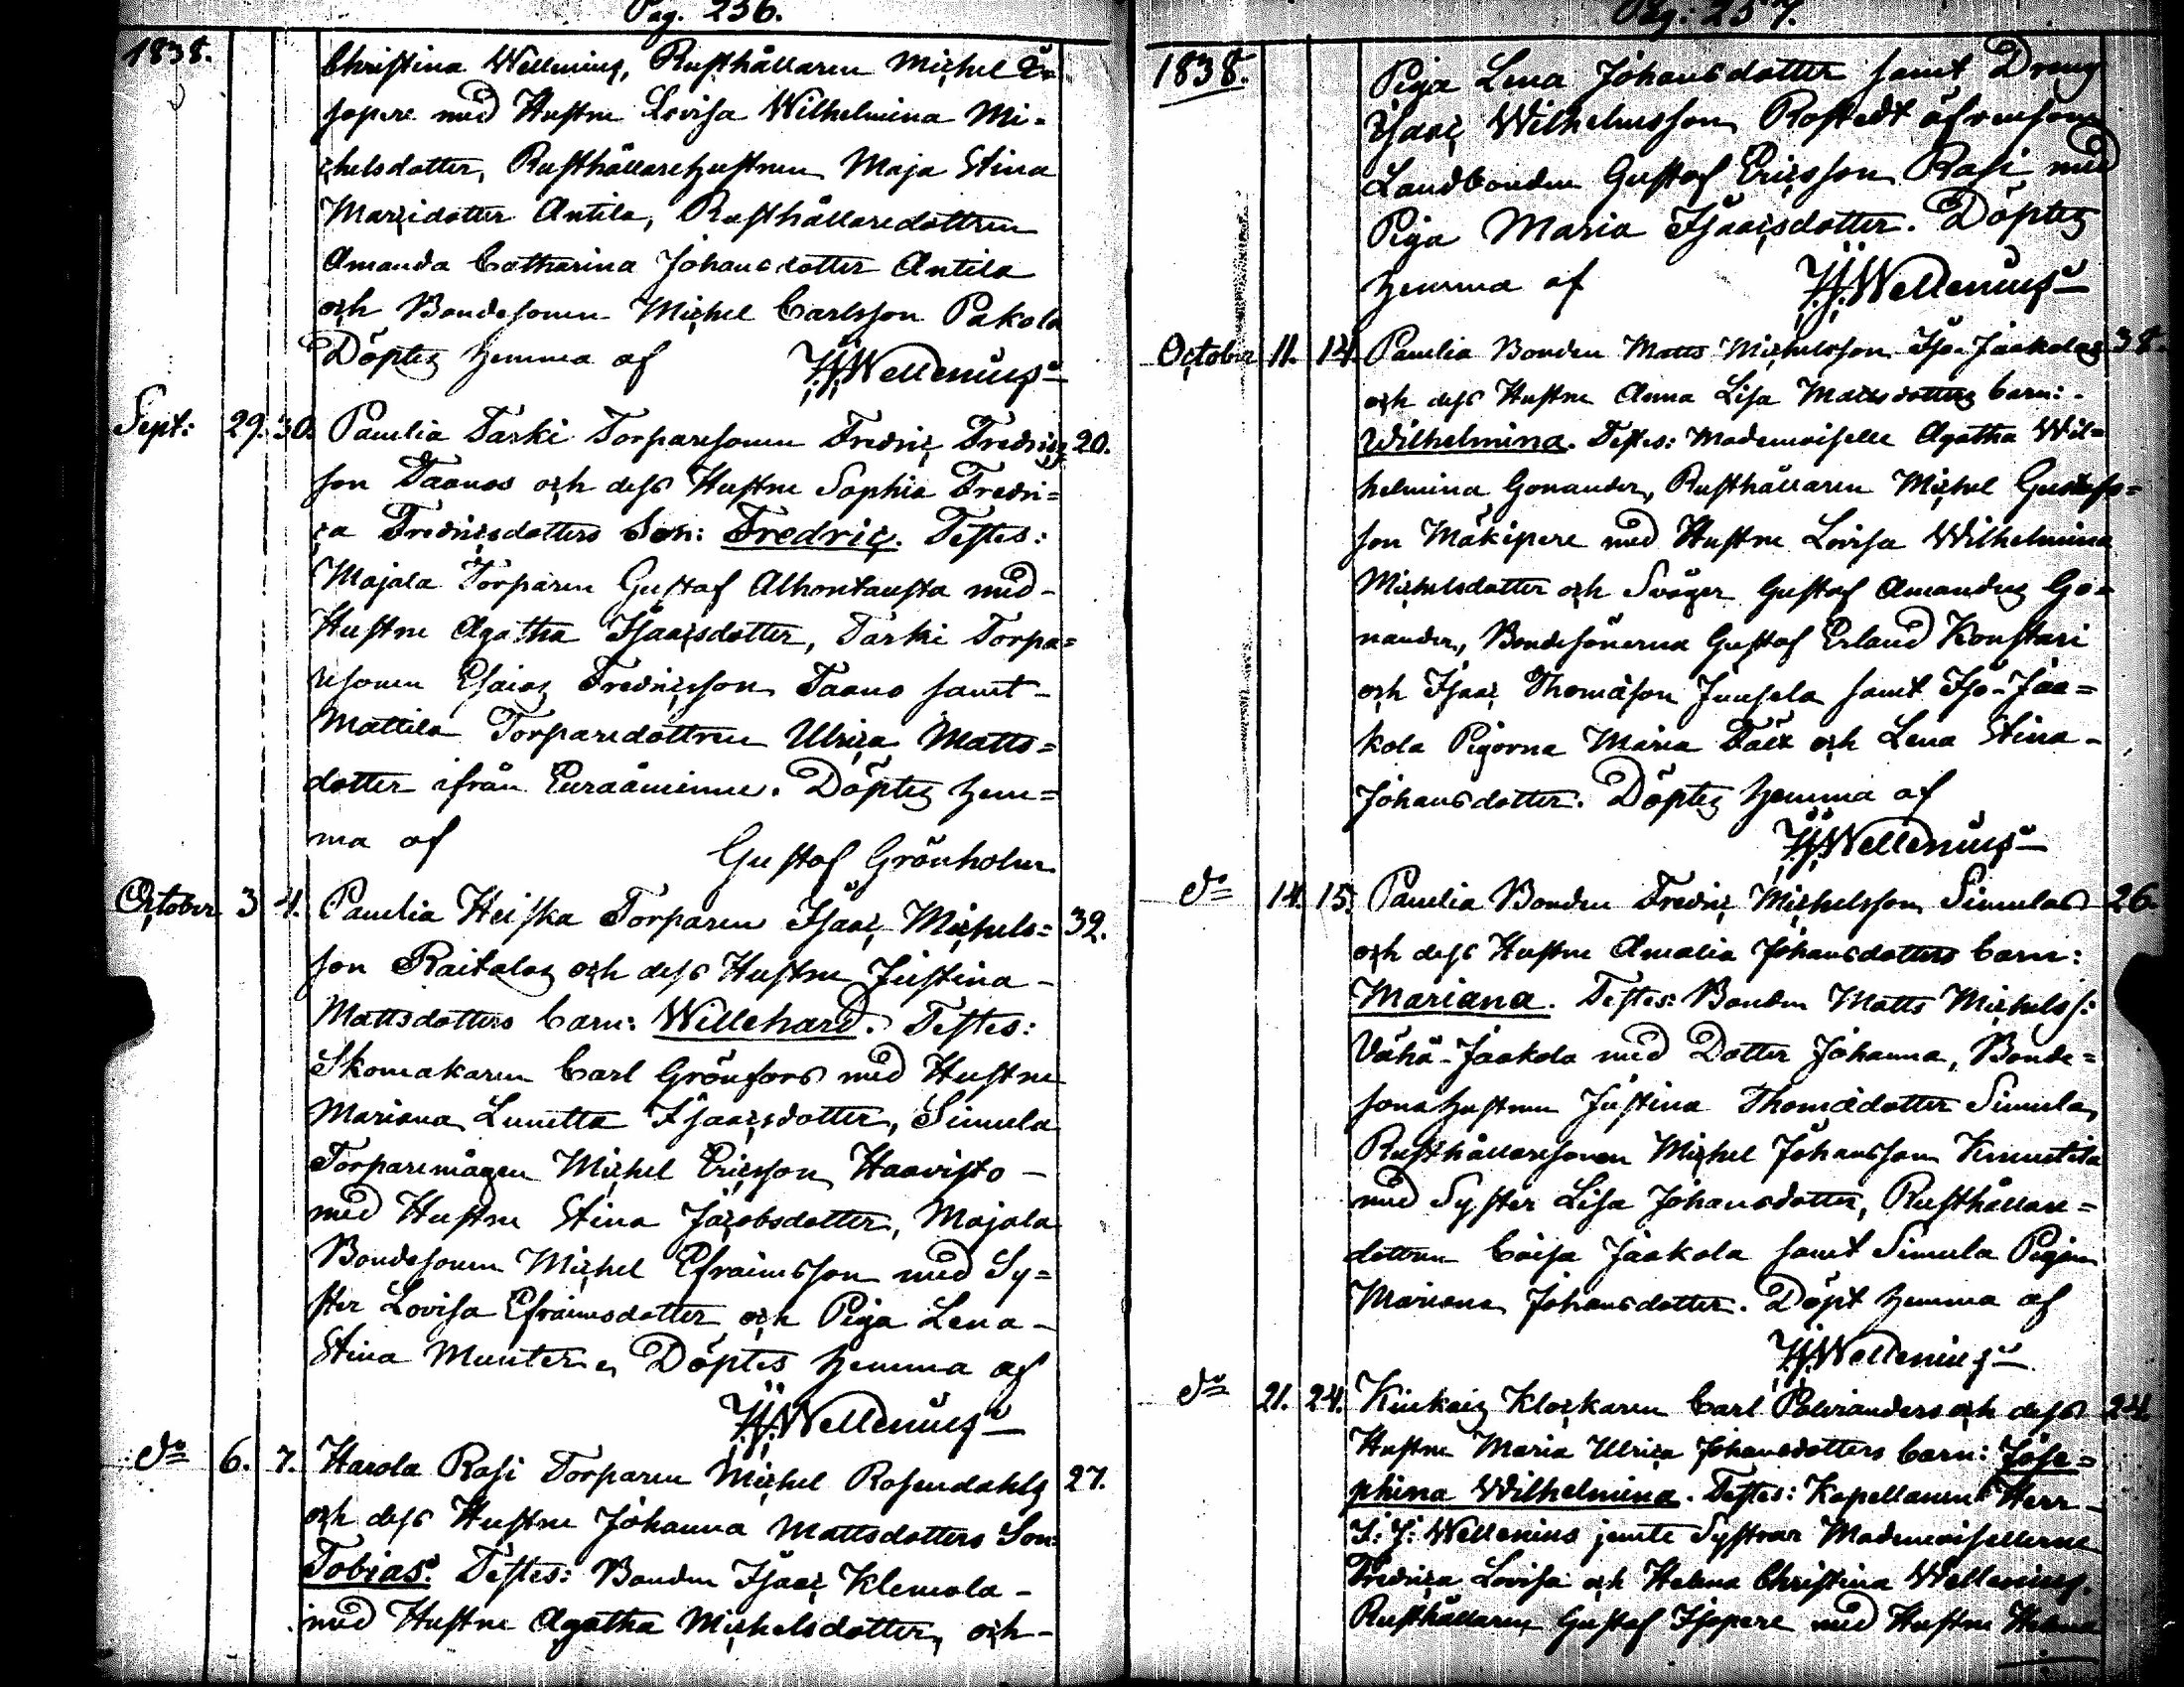 Pag. 236.
1838.
Christina Wellenius, Rusthållaren Michel
sopere med Hustru Lovisa Wilhelmina Mi=
chelsdotter, Rusthållarehustrun Maja Stina
Marcidotter Antila, Rusthållaredottren
Amanda Catharina Johansdotter Antila
och Bondesonen Michel Carlsson Pakola
Döptes hemma af Wellenius
Sept: 29. 30. Panelia Tarki Torparesonen Fredric Fredrics 20.
son Taanos och dess Hustru Sophia Fredri=
ca Fredricsdotters Son: Fredric. Testes:
Majala Torparen Gustaf Alhontausta med
Hustru Agatha Isaacsdotter, Tarki Torpa=
resonen Esaias Fredricsson Taano samt
Mattila Torparedottren Ulrica Matts=
dotter ifrån Euraåminne. Döptes hem=
ma af Gustaf Grönholm
October 3 4. Panelia Heiska Torparen Isaac Michels= 39.
son Raitalas och dess Hustru Justina
Mattsdotters barn: Willehard. Testes:
Skomakaren Carl Grönfors med Hustru
Mariana Lunetta Isaacsdotter, Simula
Torparemågen Michel Ericsson Haavisto
med Hustru Stina Jacobsdotter, Majala
Bondesonen Michel Efraimsson med Sy=
ster Lovisa Efraimsdotter och Piga Lena
Stina Munter. Döptes hemma af
Wellenius
do 6. 7. Harola Rasi Torparen Michel Rosendahls 27.
och dess Hustru Johanna Mattsdotters Son:
Tobias. Testes: Bonden Isaac Klemola
med Hustru Agatha Michelsdotter, och
Pag: 257.
1838.
Piga Lena Johansdotter samt Dreng
Isaac Wilhelmsson Rostedt äfvensom
Landbonden Gustaf Ericsson Rasi med
Piga Maria Isaacsdotter. Döptes
hemma af Wellenius
October 11. 14. Panelia Bonden Matts Michelsson Iso-Jaakolas 38.
och dess Hustru Anna Lisa Mattsdotters barn:
Wilhelmina. Testes: Mademoiselle Agatha Wil=
helmina Gonander, Rusthållaren Michel Gustafs=
son Mäkipere med Hustru Lovisa Wilhelmina
Michelsdotter och Svåger Gustaf Amandus Go=
nander, Bondesönerna Gustaf Erland Konstari
och Isaac Thomasson Juusela samt Iso-Jaa=
kola Pigorna Maria och Lena Stina
Johansdotter. Döptes hemma af
Wellenius
do 14. 15. Panelia Bonden Fredric Michelsson Simulas 26.
och dess Hustru Amalia Johansdotters barn:
Mariana. Testes: Bonden Matts Michelss:
Vähä-Jaakola med Dotter Johanna, Bonde=
sonshustrun Justina Thomædotter Simula,
Rusthållaresonen Michel Johansson Knuutila
med Syster Lisa Johansdotter, Rusthållare=
dottren Caisa Jaakola samt Simula Pigan
Mariana Johansdotter. Döpt hemma af
Wellenius
do 21. 24. Kiukais Klockaren Carl Polvianders och dess 24.
Hustru Maria Ulrica Johansdotters barn: Jose=
phina Wilhelmina. Testes: Kapellanen Herr
I: J: Wellenius jemte Systrar Mademoisellerne
Fredrica Lovisa och Helena Christina Wellenius.
Rusthållaren Gustaf Isopere med Hustru Helena